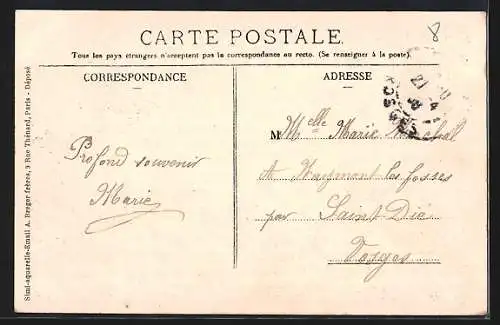 8
CARTE POSTALE.
Tous les pays étrangers n'acceptent pas la correspondance au recto. (Se renseigner à la poste).
CORRESPONDANCE
ADRESSE
Profond souvenir
Marie
M Melle Marie
A Naymont les fosses
par Saint-Dié
Vosges
Simi-aquarelle-Email A. Breger frères, 9 Rue Thénard, Paris - Déposé